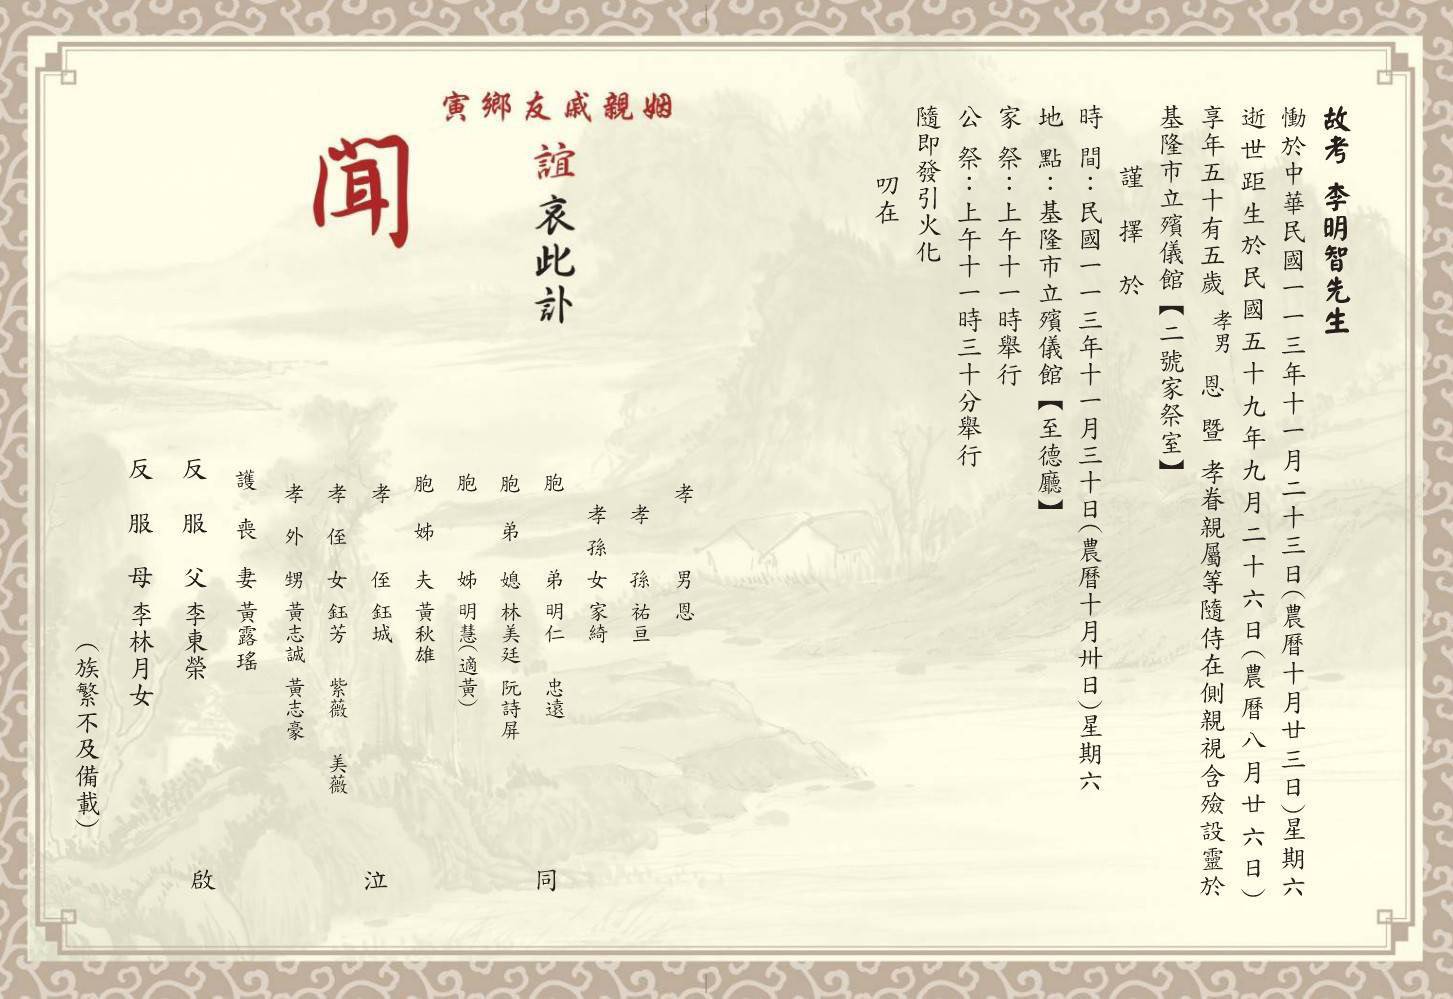 故考 李明智先生
慟於中華民國一一三年十一月二十三日(農曆十月廿三日)星期六
逝世距生於民國五十九年九月二十六日(農曆八月廿六日)
享年五十有五歲 孝男 恩 暨 孝眷親屬等隨侍在側親視含殮設靈於
基隆市立殯儀館【二號家祭室】
謹擇於
時間:民國一一三年十一月三十日(農曆十月卅日)星期六
地點:基隆市立殯儀館【至德廳】
家祭:上午十一時舉行
公祭:上午十一時三十分舉行
隨即發引火化
叨在
姻親戚友鄉寅
誼哀此訃
聞
孝男 恩
孝孫 祐亘
孝孫女 家綺
胞弟 明仁 忠遠
胞弟媳 林美廷 阮詩屏
胞姊 明慧(適黃)
胞姊夫 黃秋雄
孝侄 鈺城
孝侄女 鈺芳 紫薇 美薇
孝外甥 黃志誠 黃志豪
護喪妻 黃露瑤
反服父 李東榮
反服母 李林月女
(族繁不及備載)
同泣啟